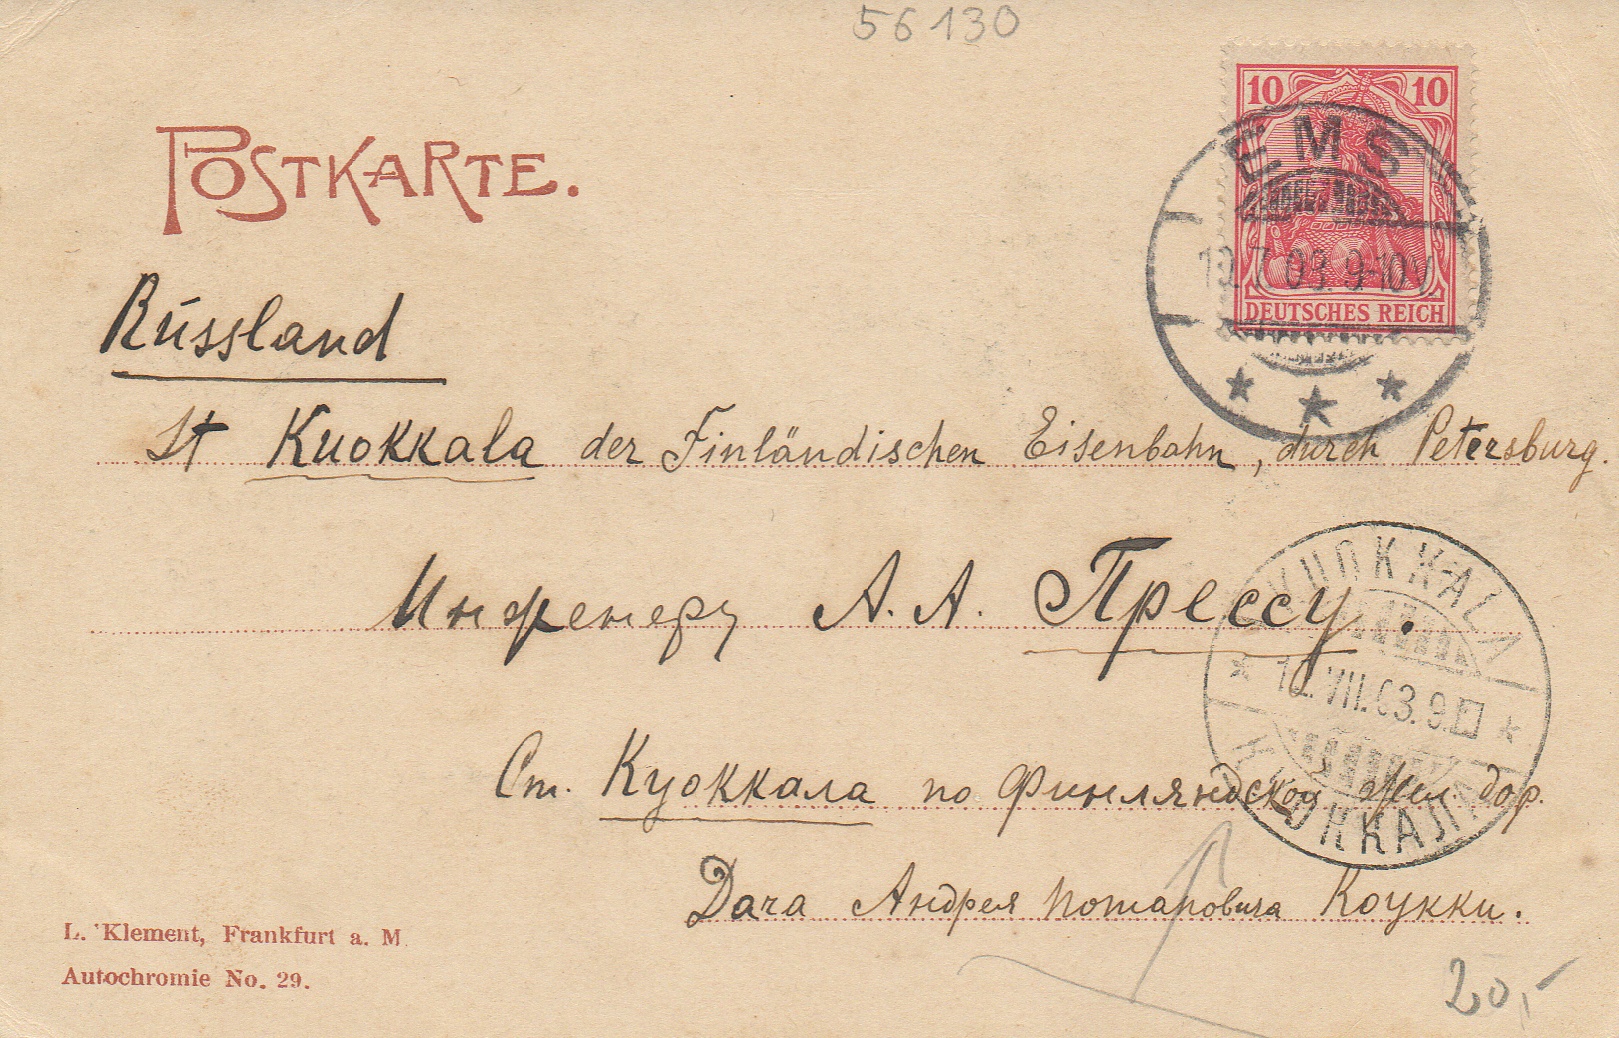 56130
POSTKARTE.
10 10
EMS
DEUTSCHES REICH
Rússland
St Kuokkala der Finländischen Eisenbahn, durch Petersburg.
Инженеру А. А. Прессу.
KUOKKALA
VII.03.9.
КУОККАЛА
Ст. Куоккала по Финляндской Жел дор.
Дача Андрея Потаповича Коукки.
L. Klement, Frankfurt a. M
Autochromie No. 29.
20,-